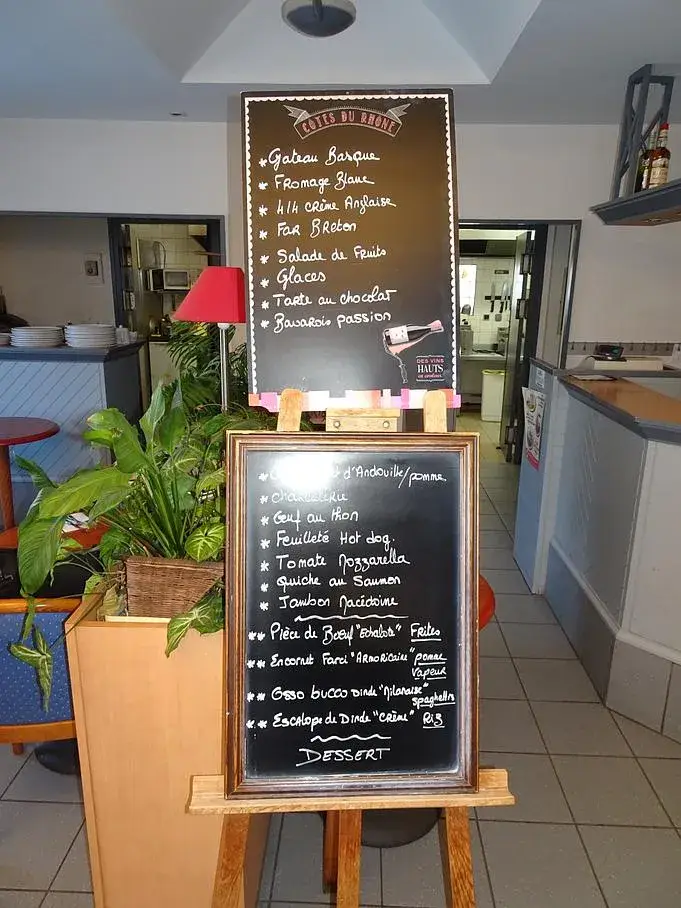 CÔTES DU RHÔNE
* Gateau Basque
* Fromage Blanc
* 4/4 crème Anglaise
* Far Breton
* Salade de Fruits
* Glaces
* Tarte au chocolat
* Bavarois passion
DES VINS
HAUTS
en couleurs
* d'Andouille/pomme
* charcuterie
* Oeuf au thon
* Feuilleté Hot dog.
* Tomate Mozzarella
* Quiche au Saumon
* Jambon Macédoine
** Pièce de Boeuf "Echalote" Frites
** Encornet Farci "Armoricaine" pomme
vapeur
** Osso bucco Dinde "Milanaise"
spaghettis
** Escalope de Dinde "Crème" Riz
DESSERT